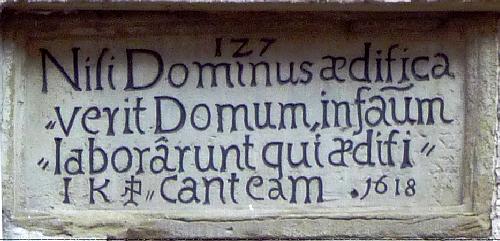 127
Niſi Dominus ædifica
„verit Domum, infaūm
„laborârunt qui ædifi„
I K „cant eam .1618